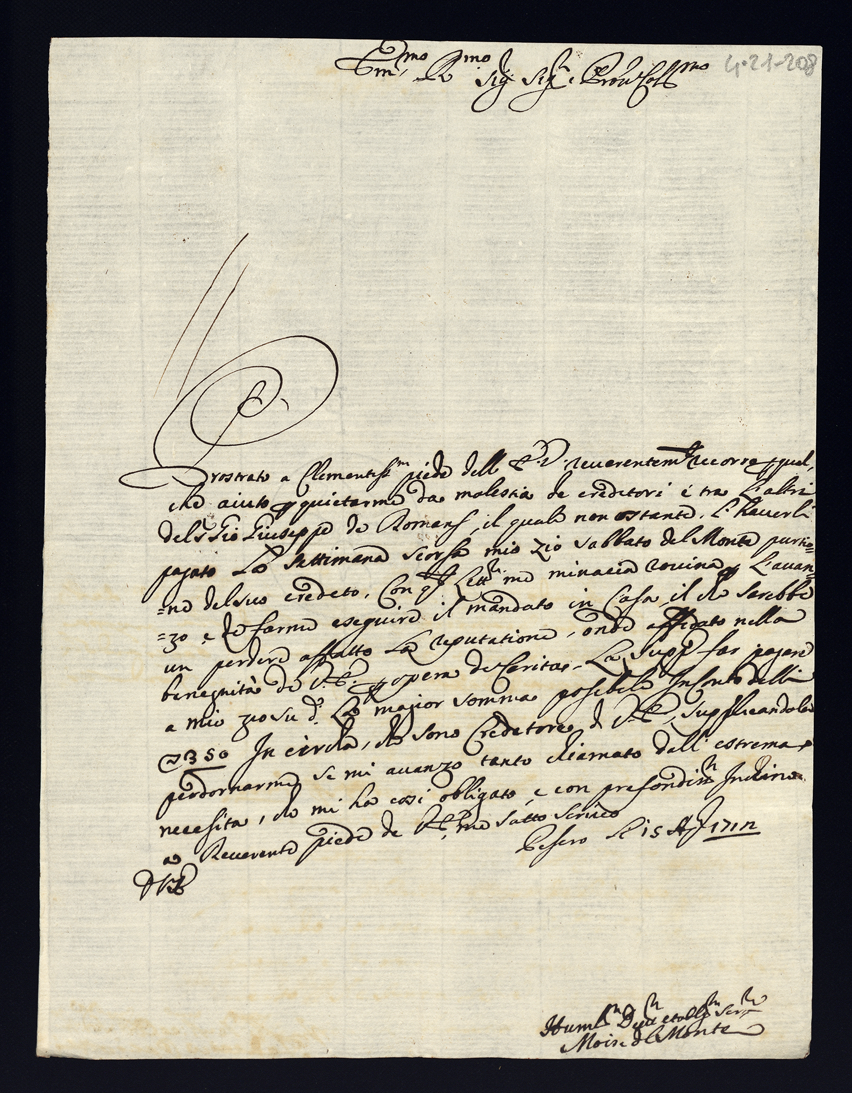 Em.mo R.mo Sig.r Sig.r e Pron Coll.mo
4.21-208
Prostrato a Clementiss.m piede dell E.V. reverentem.te recorre p qual,
che aiuto p quietarme da molestia de creditori e tra L'altri
del S. Gio Giuseppe de Romanis, il quale non ostante, L'haverli
pagato La settimana scorsa mio zio Sabbato del Monte portio=
=ne del suo credeto, con q.sta Lett.ra me minacia rovina p L'avan=
=zo e de farme eseguire il mandato in Casa, il che sarebbe
un perdere affatto La reputatione, onde affidato nella
benegnità de V.E. p opera de Caritas La supp.e far pagare
a mio zio su d.o La magior somma posibile In conto delli
350 In circha, che sono Credetore de V.E., supplicandola
perdonarme se mi avanzo tanto chiamato dall estrema
necesita, che mi ha cosi obligato, e con profondiss.m Inchino
a Reverente piede de V.E. me sotto scrivo
Pesero li 15 Ag.to 1712
D V.E.
Humil.m De.m et obl.m Ser.r
Moise del Monte